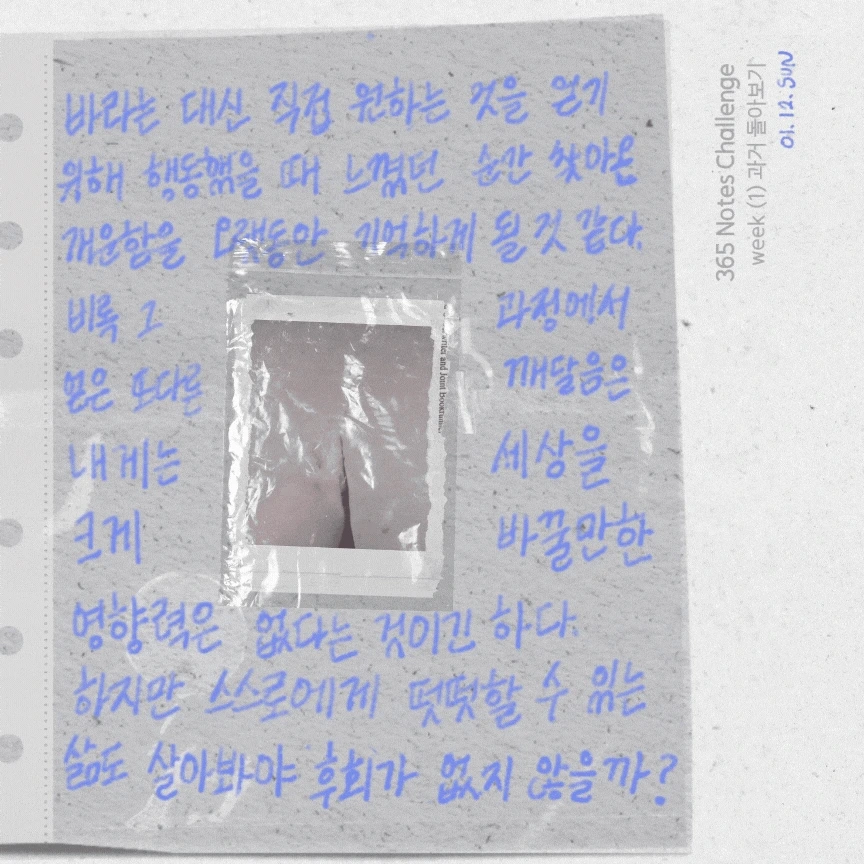 바라는 대신 직접 원하는 것을 얻기
위해 행동했을 때 느꼈던 순간 찾아온
개운함을 오랫동안 기억하게 될 것 같다.
비록 그 과정에서
얻은 또다른 깨달음은
내게는 세상을
크게 바꿀만한
영향력은 없다는 것이긴 하다.
하지만 스스로에게 떳떳할 수 있는
삶도 살아봐야 후회가 없지 않을까?
365 Notes Challenge
week (1) 과거 돌아보기
01. 12. SUN